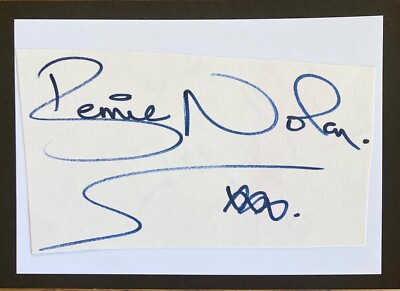 Bernie Nolan.
xxx.